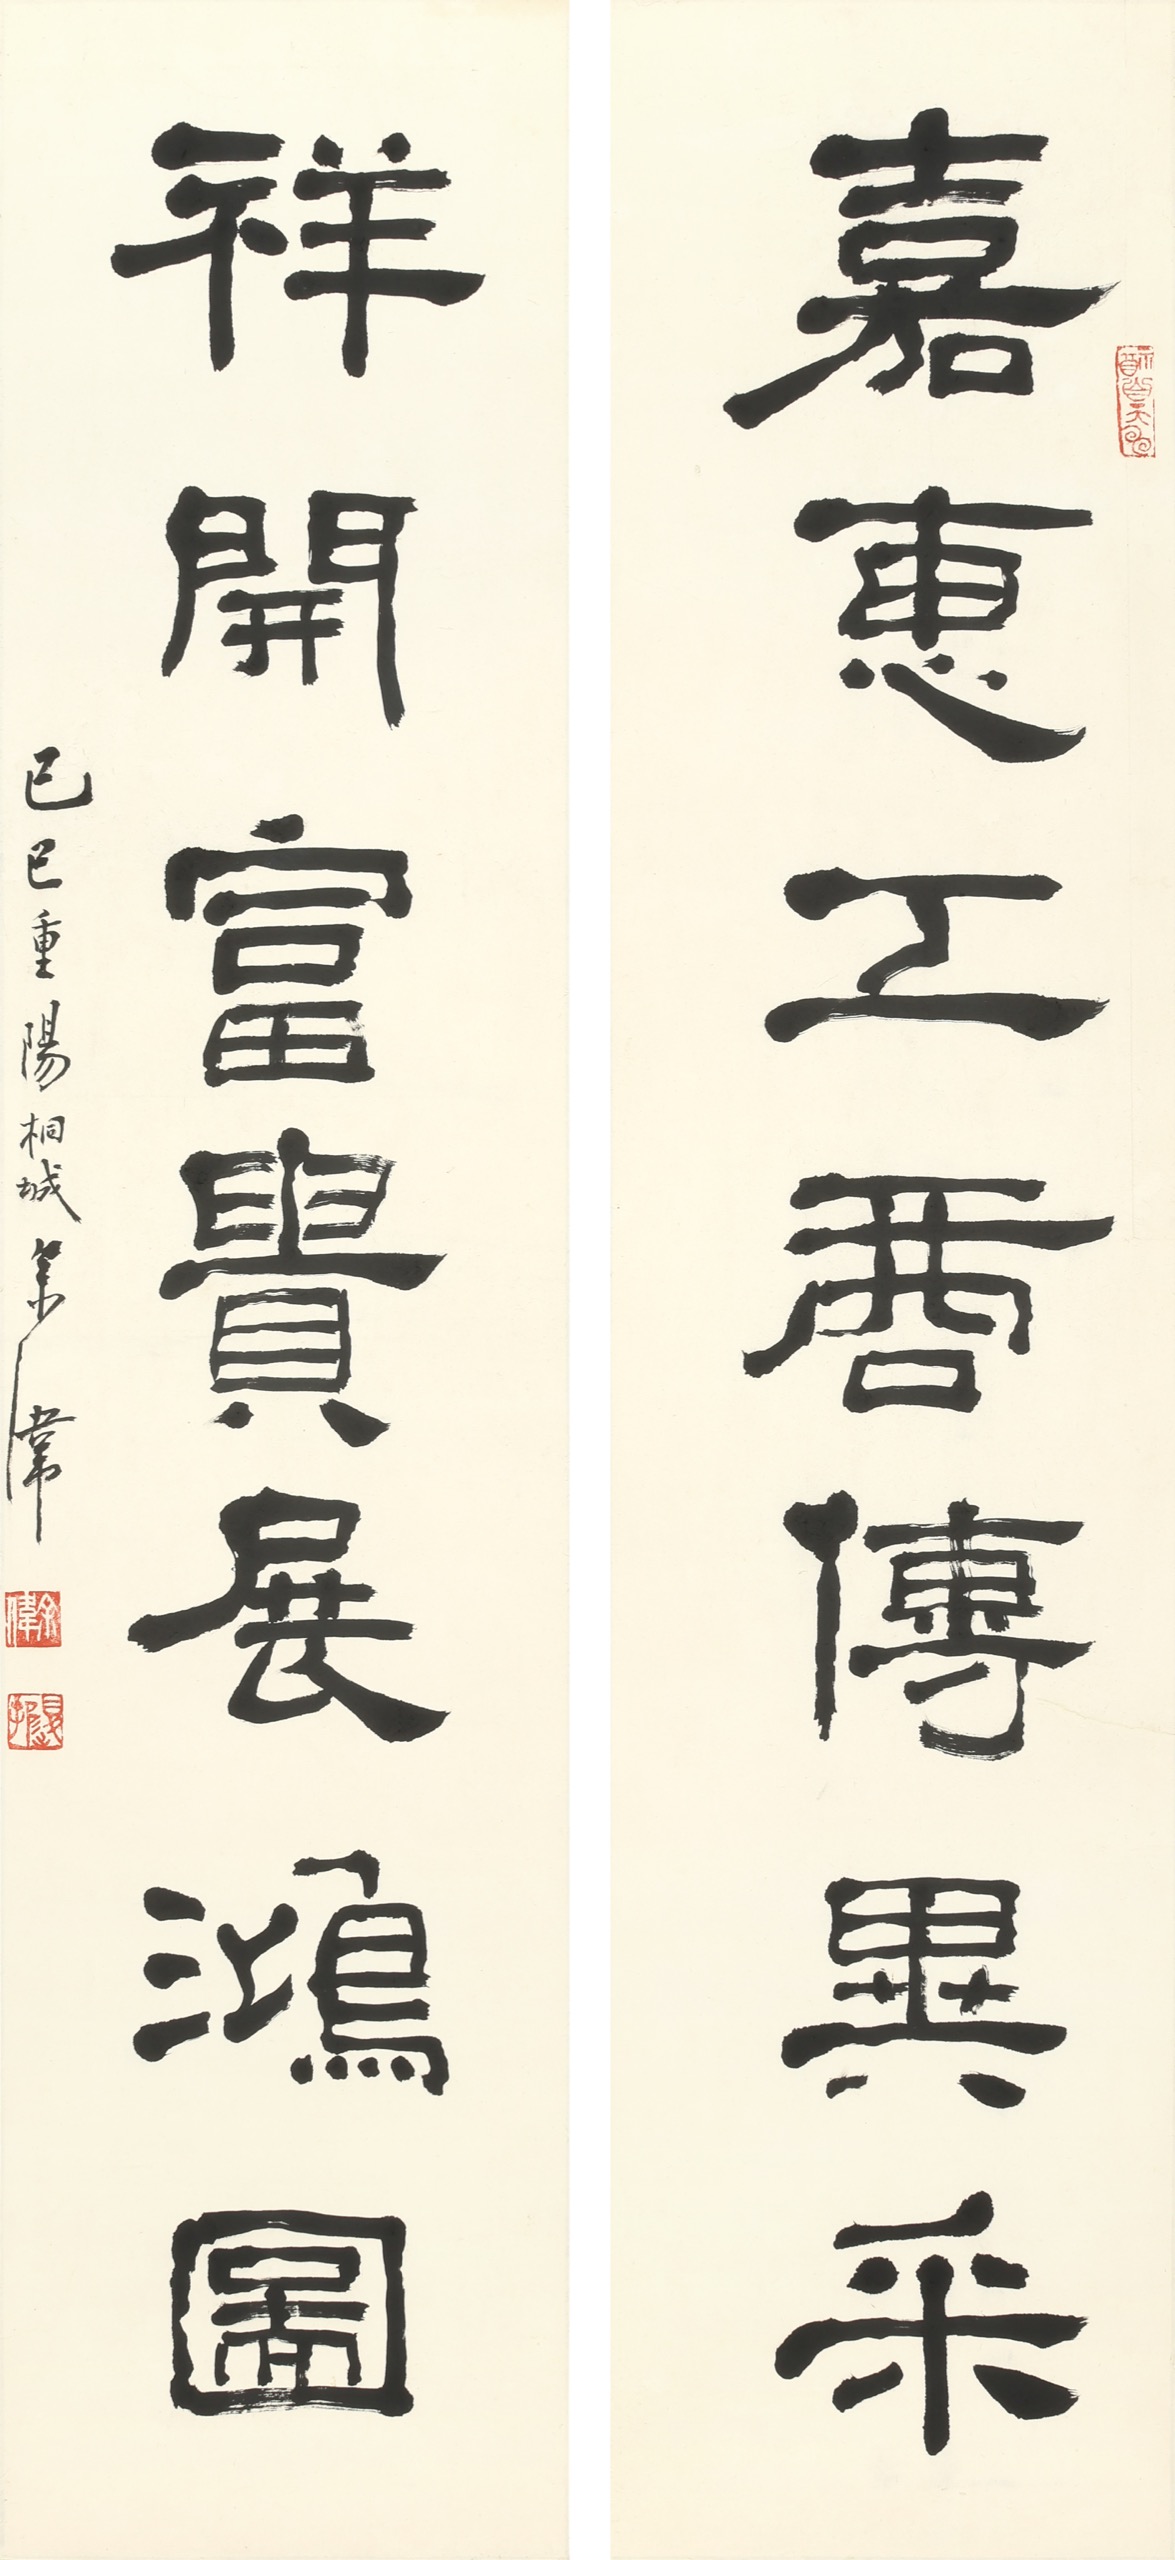 嘉惠工商傳異采
祥開富貴展鴻圖
己巳重陽桐城余偉
余偉